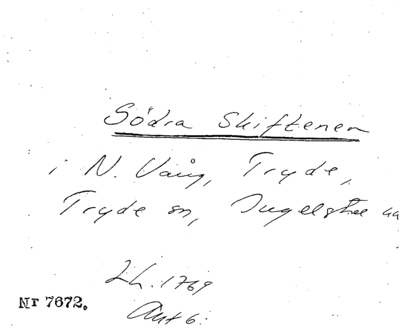 Södra Skiftenen
i N. Vång, Tryde,
Tryde sn, Ingelstads
Lh. 1769
Akt 6.
Nr 7672.